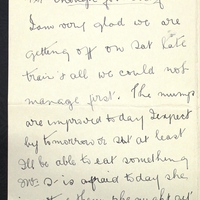 I am very glad we are
getting off on Sat late
train & all we could not
manage first. The mumps
are improved today I expect
by tomorrow or Sat at least
I'll be able to eat something
is afraid today she
might get